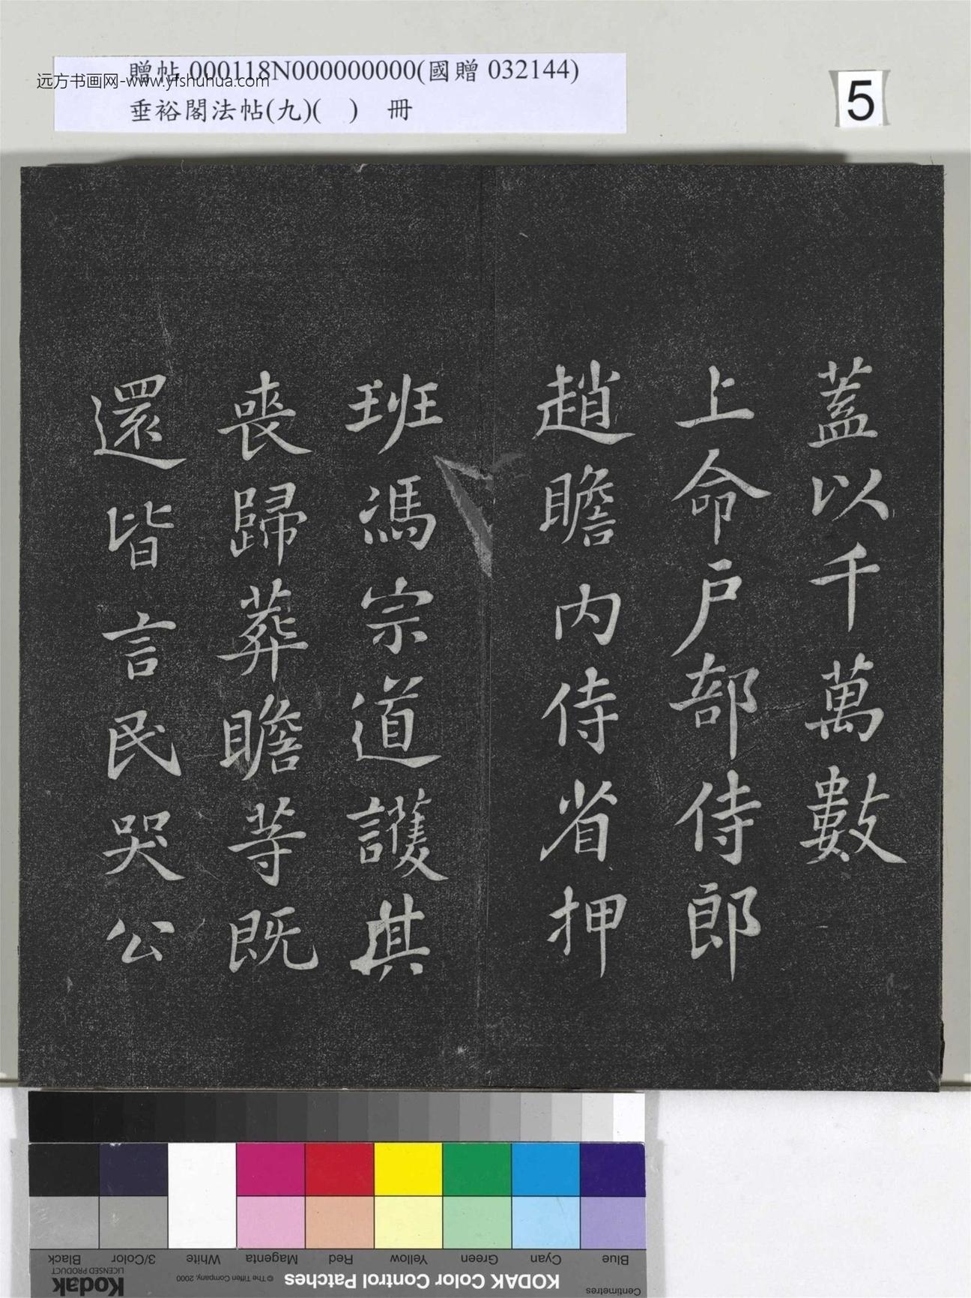 贈帖 000118N000000000(國贈 032144)
远方书画网-www.yishuhua.com
垂裕閣法帖(九)( ) 冊
5
蓋以千萬數
上命戶部侍郎
趙瞻内侍省押
班馮宗道護其
喪歸葬瞻等既
還皆言民哭公
Blue Cyan Green Yellow Red Magenta White 3/Color Black
Centimetres
KODAK Color Control Patches
© The Tiffen Company, 2000
Kodak
LICENSED PRODUCT